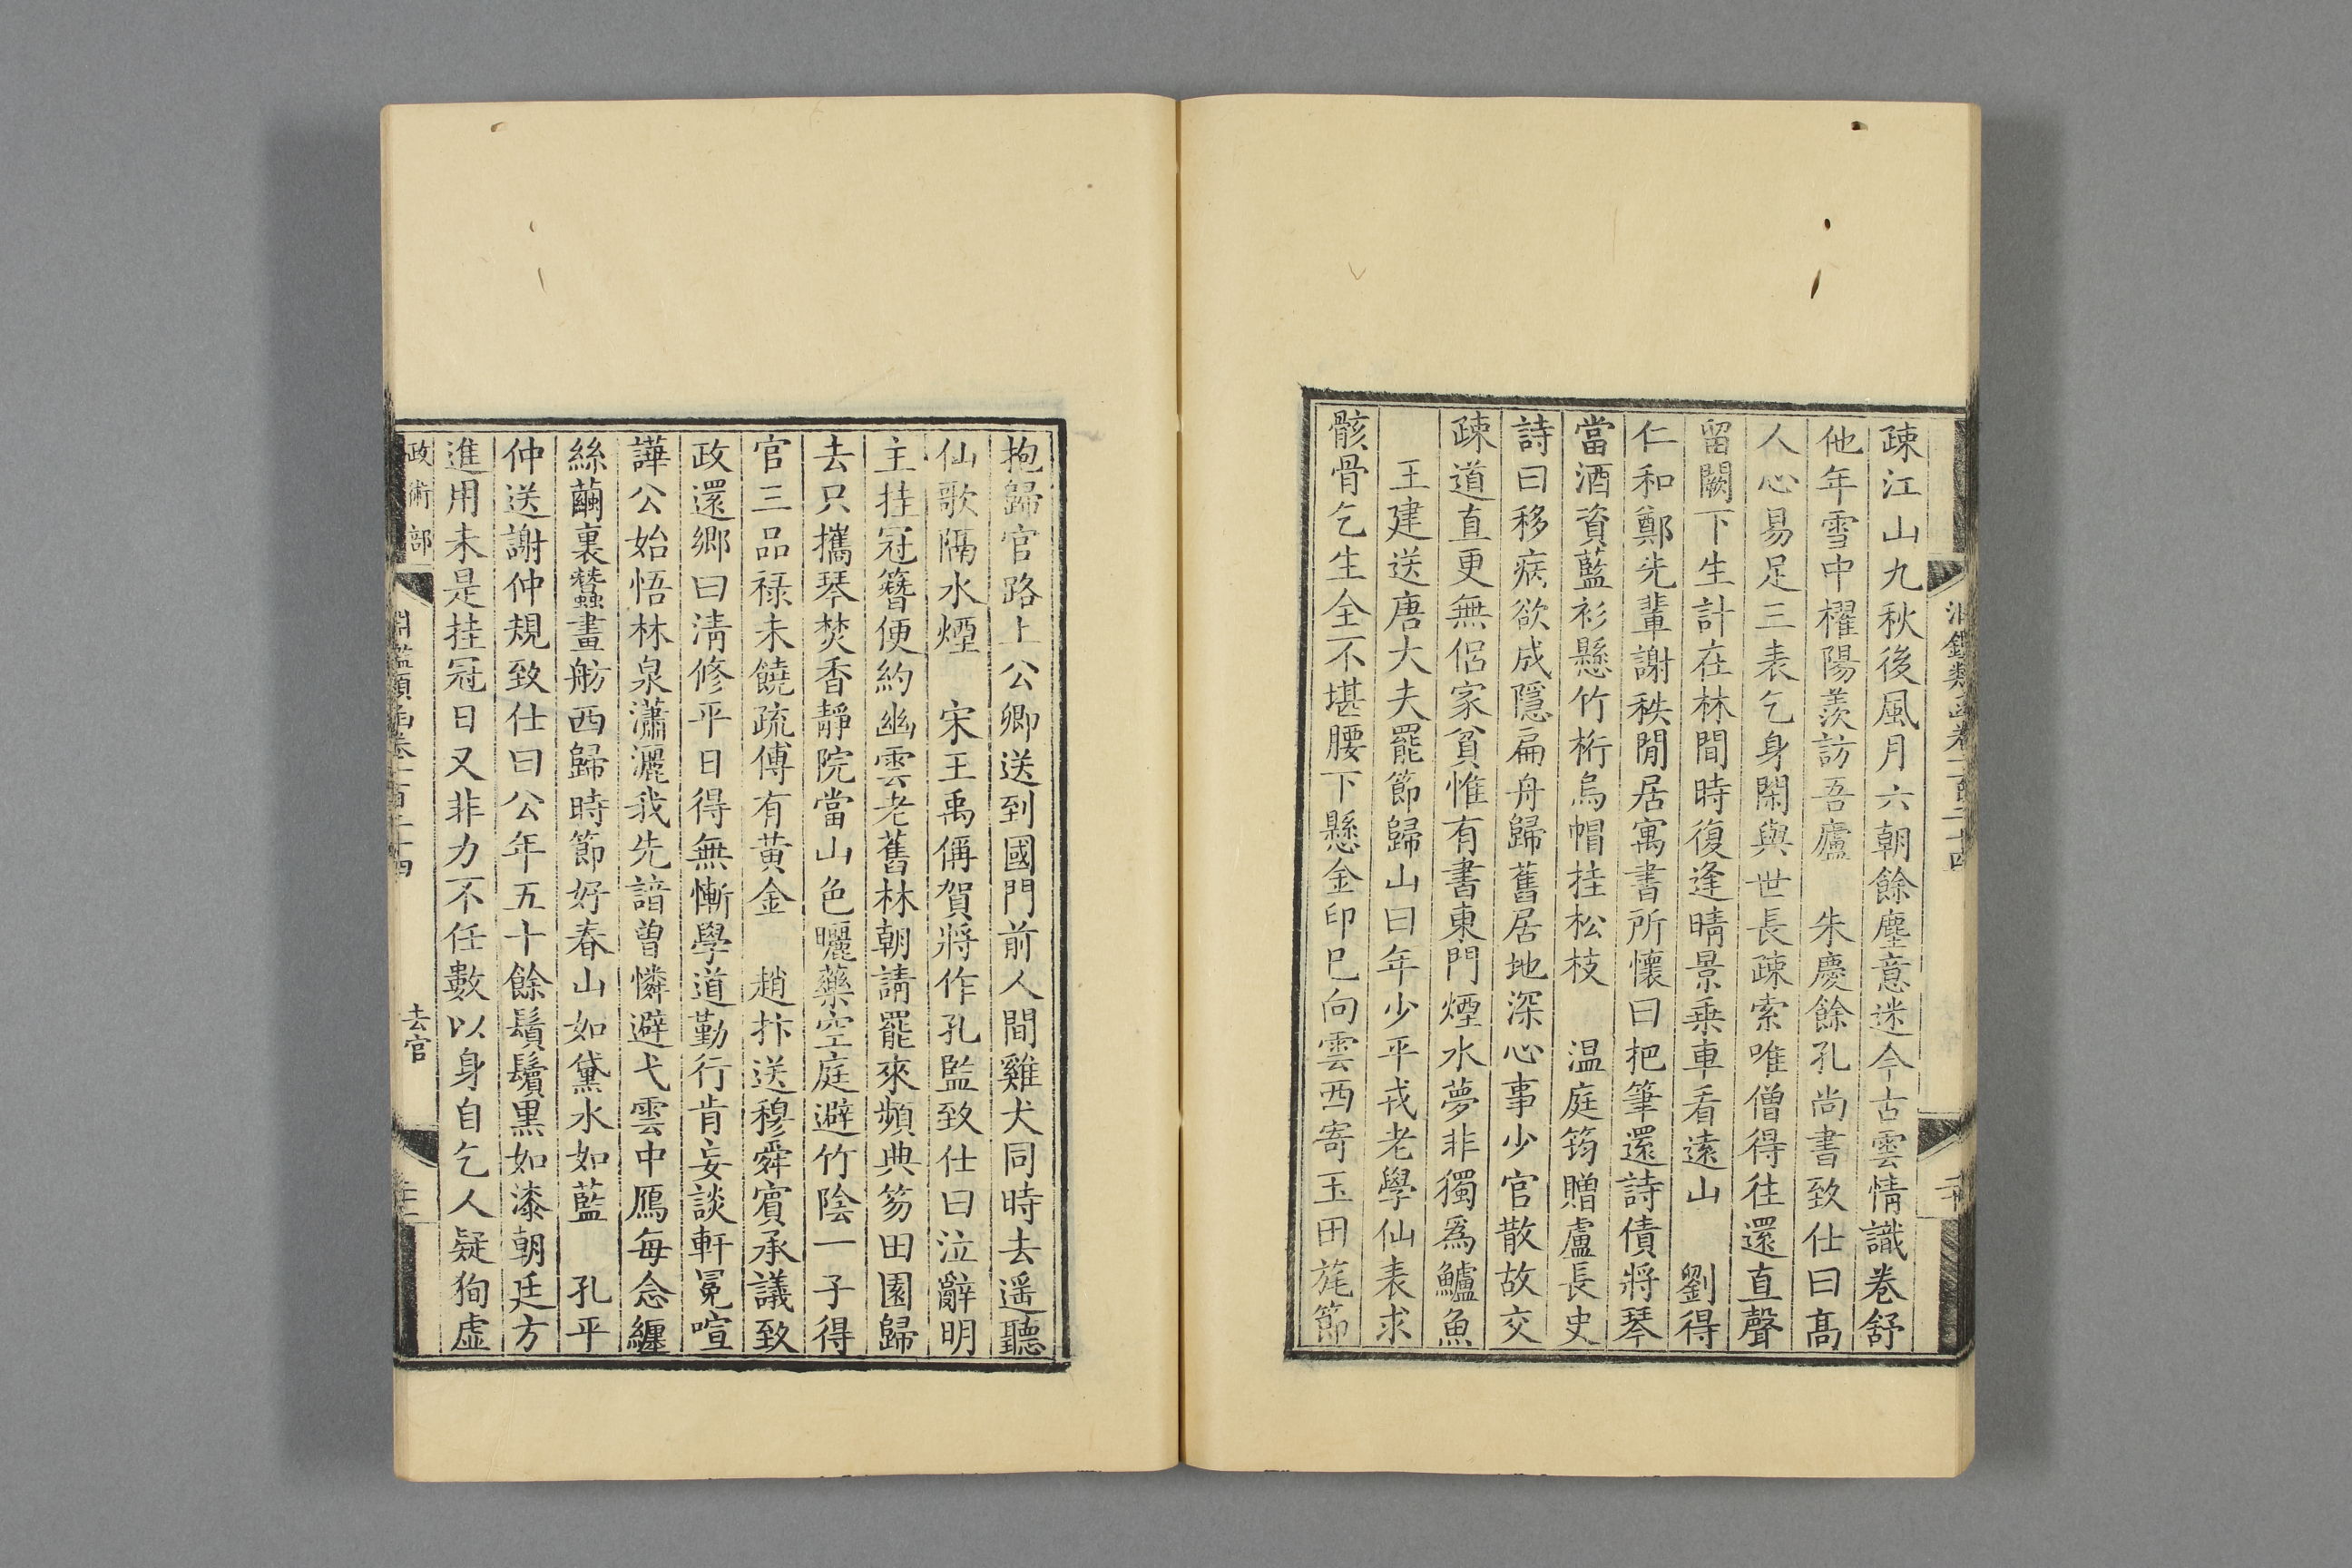 疎江山九秋後風月六朝餘塵意迷今古雲情識卷舒
他年雪中櫂陽羨訪吾廬　朱慶餘孔尚書致仕曰高
人心易足三表乞身閑與世長疎索唯僧得往還直聲
留闕下生計在林間時復逢晴景乗車看逺山　劉得
仁和鄭先輩謝秩閒居寓書所懷曰把筆還詩債將琴
當酒資藍衫懸竹桁烏帽挂松枝　温庭筠贈盧長史
詩曰移病欲成隱扁舟歸舊居地深心事少官散故交
疎道直更無侶家貧惟有書東門煙水夢非獨爲鱸魚
王建送唐大夫罷節歸山曰年少平戎老學仙表求
骸骨乞生全不堪腰下懸金印已向雲西寄玉田旄節
抱歸官路上公卿送到國門前人間雞犬同時去遥聽
仙歌隔水煙　宋王禹偁賀將作孔監致仕曰泣辭明
主挂冠簪便約幽雲老舊林朝請罷來頻典笏田園歸
去只攜琴焚香靜院當山色曬藥空庭避竹陰一子得
官三品禄未饒疏傅有黃金　趙抃送穆舜賓承議致
政還鄉曰淸修平日得無慚學道勤行肯妄談軒冕喧
譁公始悟林泉瀟灑我先諳曾憐避弋雲中鴈每念纏
絲繭裏蠶畫舫西歸時節好春山如黛水如藍　孔平
仲送謝仲規致仕曰公年五十餘鬚鬢黒如漆朝廷方
進用未是挂冠日又非力不任數以身自乞人疑狥虛
政術部
淵鑑類函卷一百三十四
去官